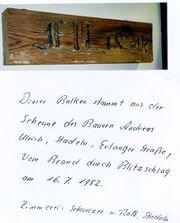 Dieser Balken stammt aus der
Scheune des Bauern Andreas
Ulrich, Stadeln, Erlanger Straße,
Vom Brand durch Blitzschlag
am 16.7.1982.
Zimmerei Schweizer u. Roth, Stadeln